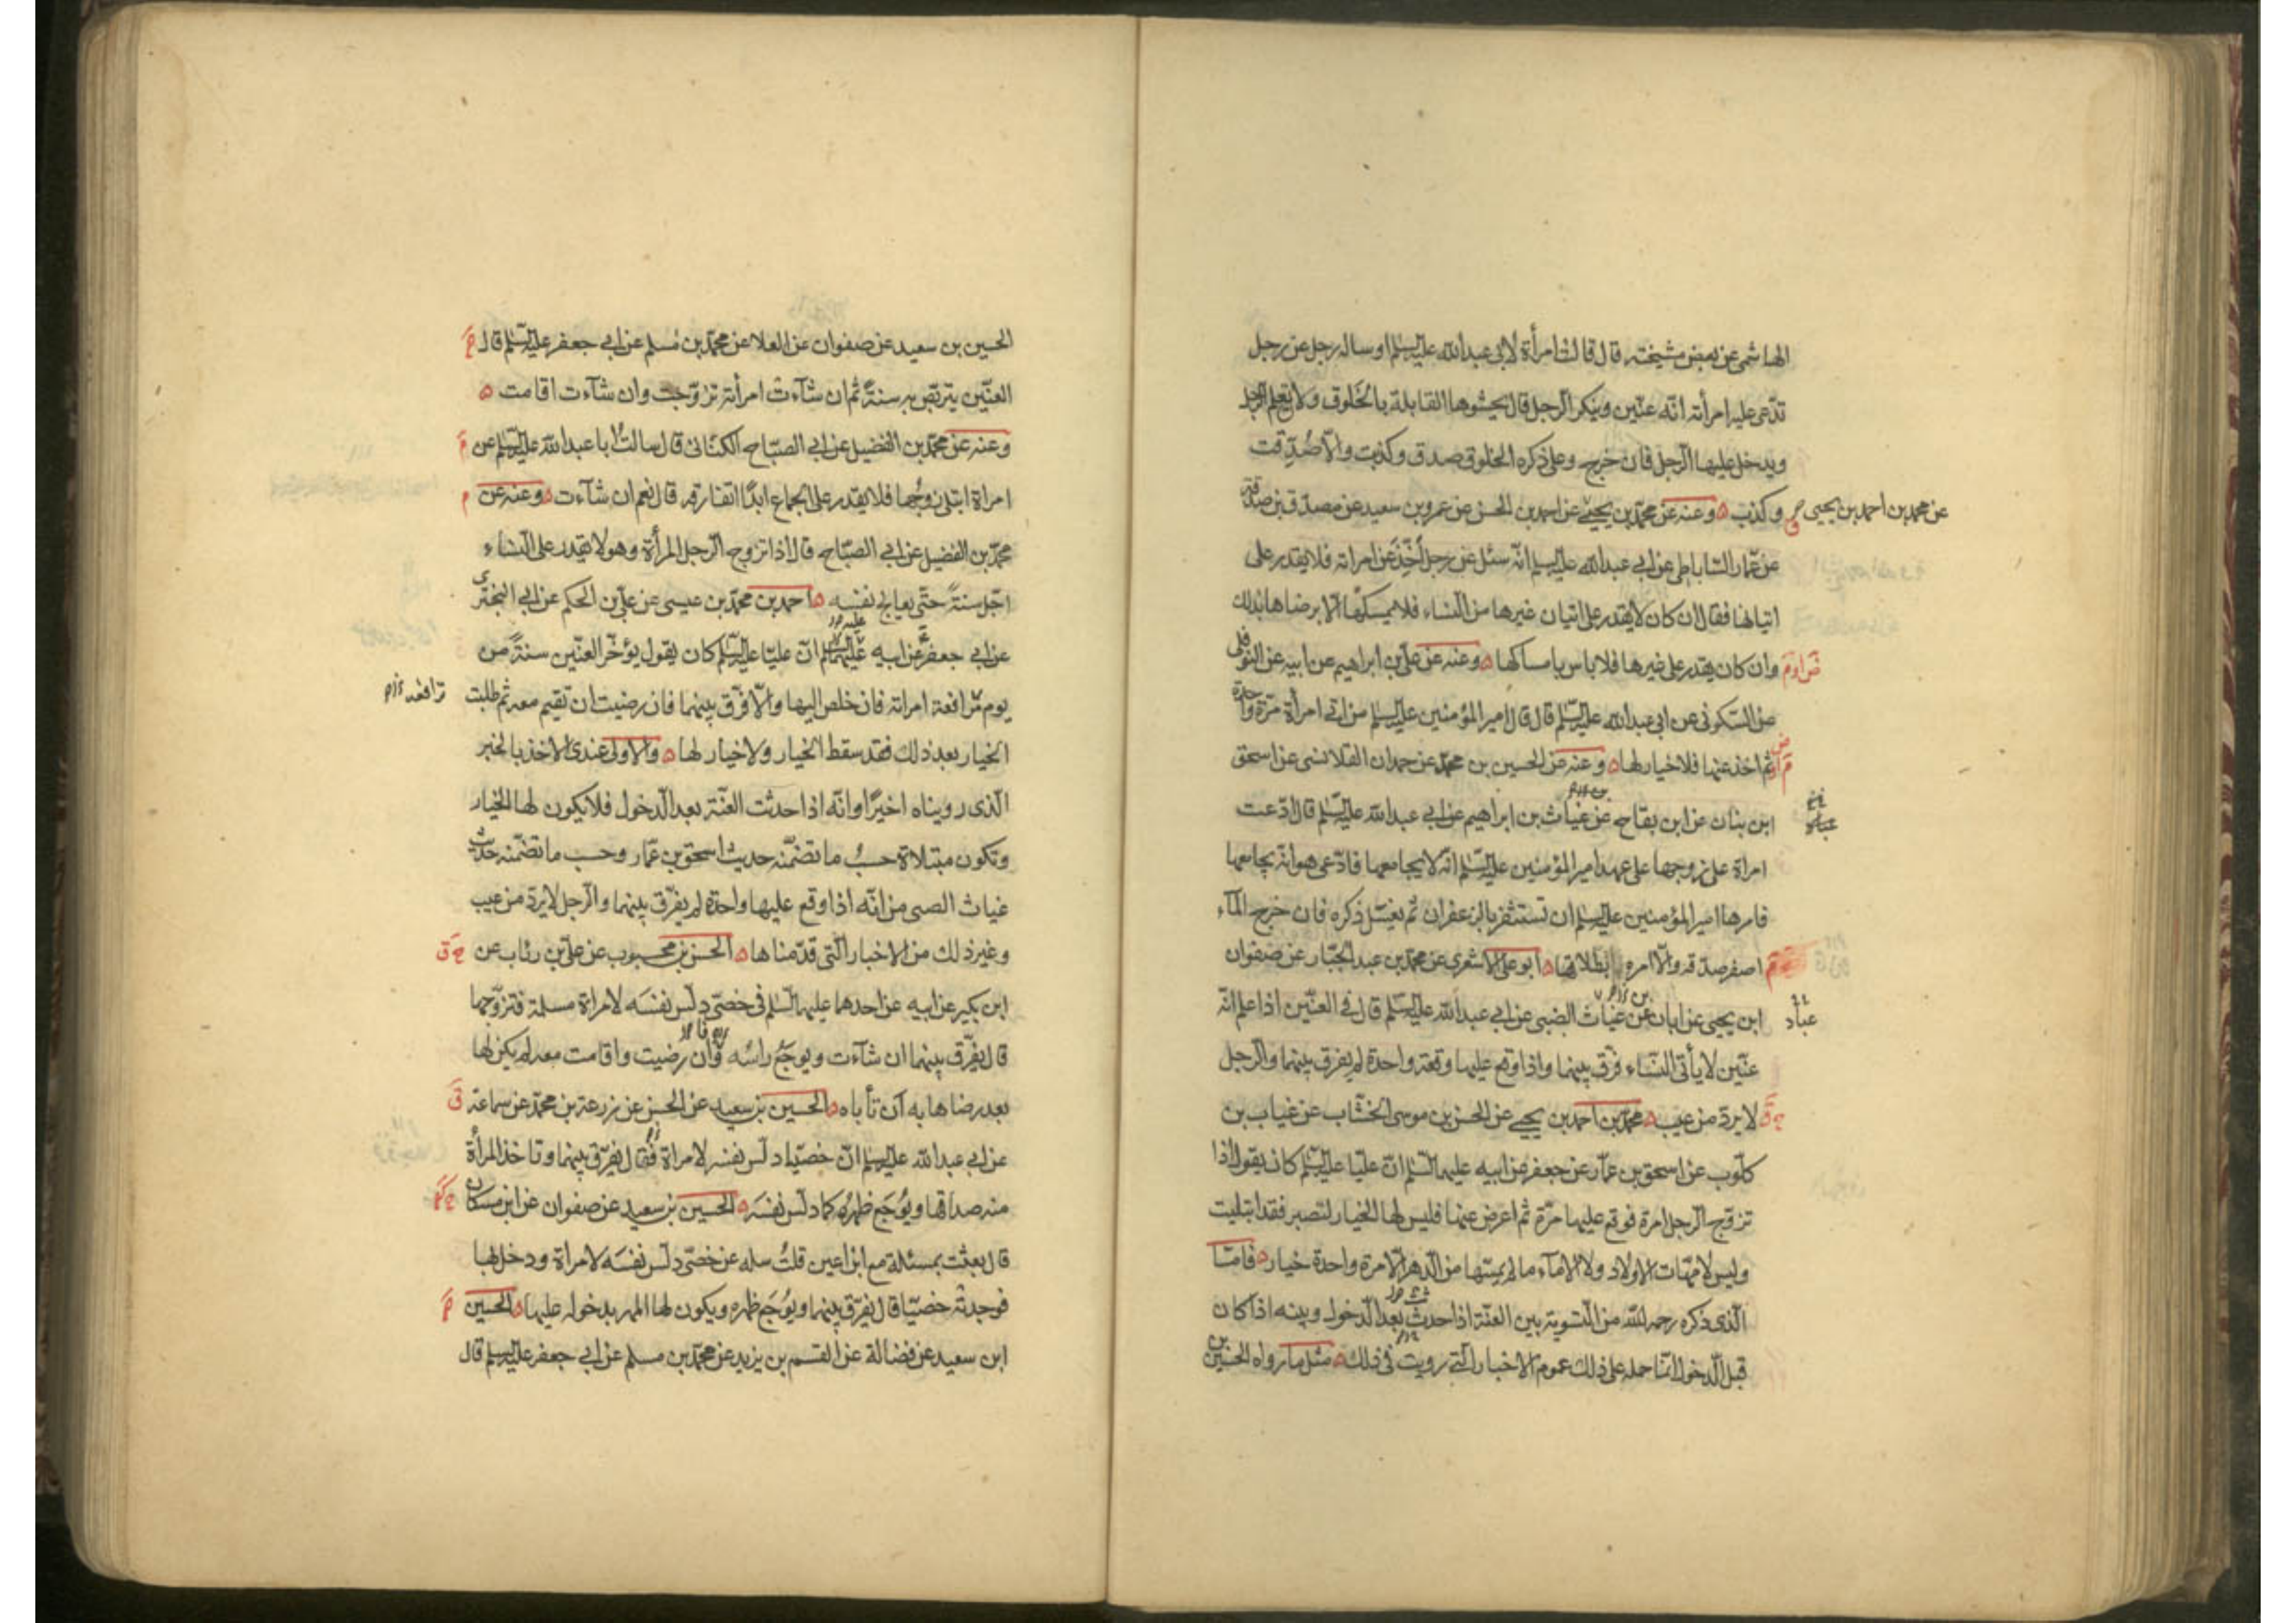 الهاشمى عن بعض مشيخته قال قالت امرأة لابى عبدالله عليه السلم او ساله رجل عن رجل
تدّعى عليه امرأته انّه عنّين وينكر الرجل قال يحشوها القابلة بالخلوق ولا تعلم الرجل
ويدخل عليها الرجل فان خرج وعلى ذكره الخلوق صدق وكذبت والّا صُدّقت
وكذب وعنه عن محمّد بن يحيى عن احمد بن الحسن عن عمرو بن سعيد عن مصدّق بن صدقة
عن محمد بن احمد بن يحيى
عن عمّار الساباطى عن ابى عبدالله عليه السلم انّه سئل عن رجل أُخّذ عن امراته فلا يقدر على
اتيانها فقال ان كان لا يقدر على اتيان غيرها من النساء فلا يمسكها الّا برضاها بذلك
وان كان يقدر على غيرها فلا باس بامساكها وعنه عن علىّ بن ابراهيم عن ابيه عن النوفلى
عن السكونى عن ابى عبدالله عليه السلم قال قال امير المؤمنين عليه السلم من اتى امرأة مرّة واحدة
ثم اخذ عنها فلا خيار لها وعنه عن الحسين بن محمد عن حمدان القلانسى عن اسحق
ابن بنان عن ابن بقاح عن غياث بن ابراهيم عن ابى عبدالله عليه السلم قال ادّعت
امراة على زوجها على عهد امير المؤمنين عليه السلم انّه لا يجامعها فادّعى هو انه يجامعها
فامرها امير المؤمنين عليه السلم ان تستثفر بالزعفران ثم يغسل ذكره فان خرج المآء
اصفر صدّقه والّا امره بطلاقها ابو على الاشعرى عن محمّد بن عبد الجبّار عن صفوان
ابن يحيى عن ابان عن غياث الضبى عن ابى عبدالله عليه السلم قال فى العنّين اذا علم انّه
عباد
عنّين لا يأتى النساء فرّق بينهما واذا وقع عليها وقعة واحدة لم يفرق بينهما والرجل
لا يردّ من عيب محمّد بن احمد بن يحيى عن الحسن بن موسى الخشّاب عن غياب بن
كلّوب عن اسحق بن عمّار عن جعفر عن ابيه عليهما السلم انّ عليّا عليه السلم كان يقول اذا
تزوّج الرجل امرة فوقع عليها مرّة ثم اعرض عنها فليس لها الخيار لتصبر فقد ابتليت
وليس لامّهات الاولاد ولا الامآء ما لم يمسّها من الدهر الّا مرة واحدة خيار فامّا
الّذى ذكره رحمه الله من التسوية بين العنّة اذا حدثت بعد الدخول وبينه اذا كان
قبل الدخول انّما حمله على ذلك عموم الاخبار الّتى رويت فى ذلك مثل ما رواه الحسين
الحسين بن سعيد عن صفوان عن العلا عن محمّد بن مُسلم عن ابى جعفر عليه السلم قال
العنّين يتربّص به سنةً ثم ان شآءت امرأته تزوّجت وان شآءت اقامت
وعنه عن محمّد بن الفضيل عن ابى الصبّاح الكنانى قال سالتُ ابا عبدالله عليه السلم عن
امراة ابتلى زوجُها فلا يقدر على الجماع ابدًا اتفارقه قال نعم ان شآءت وعنه عن
محمّد بن الفضيل عن ابى الصبّاح قال اذا تزوج الرجل المرأة وهو لا يقدر على النساء
اجّل سنةً حتّى يعالج نفسه احمد بن محمّد بن عيسى عن علىّ بن الحكم عن ابى البخترى
عن ابى جعفر عن ابيه عليهما السلم انّ عليّا عليه السلم كان يقول يؤخّر العنّين سنةً من
يوم مرافعة امراته فان خلص اليها والّا فرّق بينهما فان رضيت ان تقيم معه ثم طلبت
ترافعه
الخيار بعد ذلك فقد سقط الخيار ولا خيار لها والاولى عندى الاخذ بالخبر
الّذى رويناه اخيرًا وانّه اذا حدثت العنّة بعد الدخول فلا يكون لها الخيار
وتكون مبتلاة حسبُ ما تضمّنه حديث اسحق بن عمّار وحسب ما تضمّنه حديث
غياث الضبى من انّه اذا وقع عليها واحدة لم يفرّق بينهما والرجل لا يردّ من عيب
وغير ذلك من الاخبار الّتى قدّمناها الحسن بن محبوب عن علىّ بن رئاب عن
ابن بكير عن ابيه عن احدهما عليهما السلم فى خصىّ دلّس نفسَه لامراة مسلمة فتزوّجها
قال يفرّق بينهما ان شآءت ويوجعُ راسُه وان رضيت واقامت معه لم يكن لها
بعد رضاها به ان تأباه الحسين بن سعيد عن الحسن عن زرعة بن محمّد عن سماعة
عن ابى عبدالله عليه السلم انّ خصيّا دلّس نفسه لامراة فقال يفرّق بينهما وتاخذ المرأة
منه صداقها ويُوجَع ظهرُه كما دلّس نفسَه الحسين بن سعيد عن صفوان عن ابن مسكان
قال بعثت بمسئلة مع ابن اعين قلتُ سله عن خصىّ دلّس نفسَه لامراة ودخل بها
فوجدتْه خصيّا قال يفرّق بينهما ويُوجَع ظهره ويكون لها المهر بدخوله عليها الحسين
ابن سعيد عن فضالة عن القسم بن يزيد عن محمّد بن مسلم عن ابى جعفر عليه السلم قال